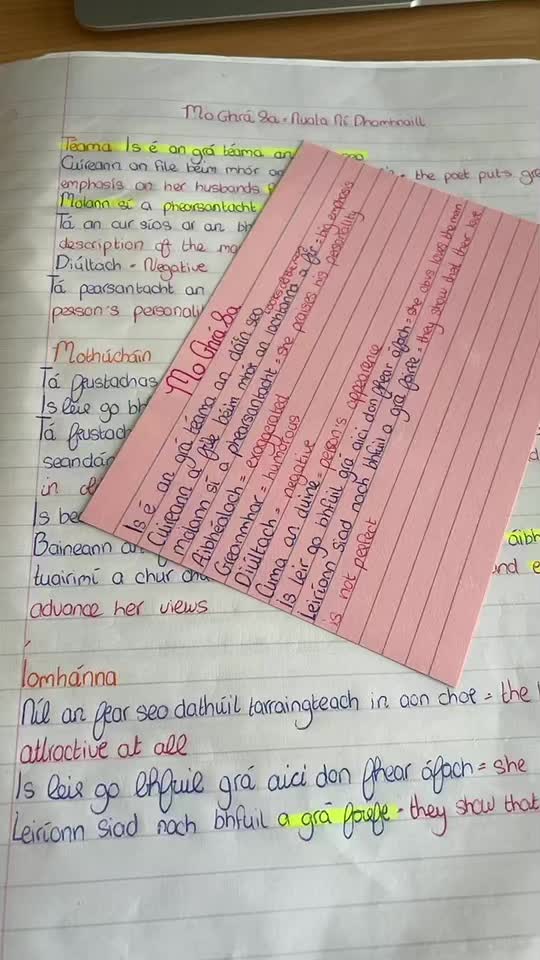 Mo Ghrá Sa = Nuala Ní Dhomhnaill
Téama Is é an grá téama an
Cuireann an file béim mhór the poet puts gre
emphasis on her husbands
Molann sí a phearsantacht
Tá an cur síos ar an bh
description of the ma
Diúltach - Negative
Tá pearsantacht an
person's personali
Mothúcháin
Tá frustachas
Is leir go bh
Tá frustach
seandá
in
Is be
Baineann an áibh
tuairimí a chur cha and e
advance her views
Iomhánna
Níl an fear seo dathúil tarraingteach in aon chor = the
attractive at all
Is leir go bhfuil grá aici don fhear áfach = she
Leiríonn siad nach bhfuil a grá foirfe - they show that
Mo Ghrá Sa
Is é an grá téama an dáin seo
Cuireann a file béim mhór an lochtanna a fir = big emphasis
molann sí a phearsantacht = she praises his personality
Aibhéalach = exaggerated
Greannmhar = humorous
Diúltach = negative
Cuma an duine = person's appearence
Is leir go bhfuil grá aici don fhear áfach = she obvs loves the man
Leiríonn siad nach bhfuil a grá foirfe = they show that their love
is not perfect